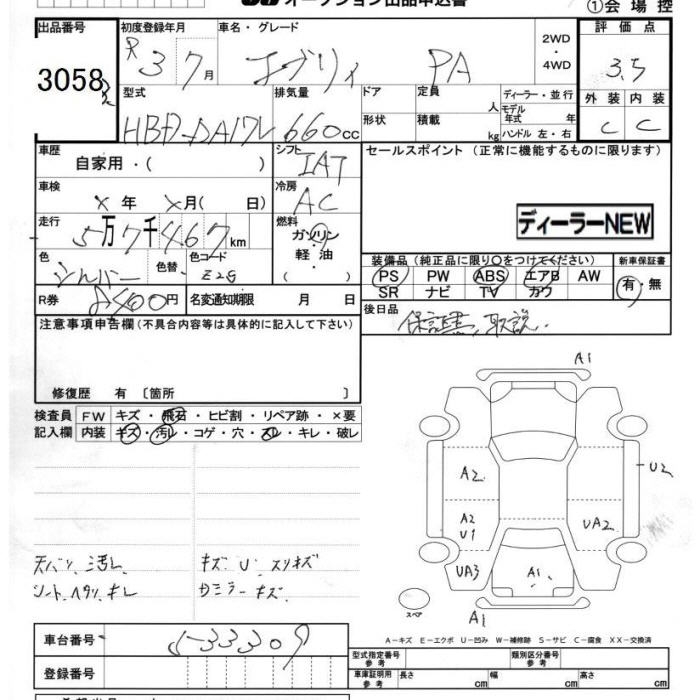 オークション出品申込書
①会場控
出品番号 初度登録年月 車名・グレード 2WD・4WD 評価点
3058 R3 7月 エブリィ PA 3.5
型式 排気量 ドア 定員 人 ディーラー・並行 外装 内装
形状 積載 kg モデル年式 年 ハンドル 左・右
HBD-DA17V 660cc C C
車歴 自家用・( ) シフト IAT セールスポイント (正常に機能するものに限ります)
車検 X年X月( 日) 冷房 AC
走行 5万7千467km 燃料 ガソリン 軽油 ディーラーNEW
色 シルバー 色替 色コード Z2S
装備品(純正品に限り〇をつけてください) 新車保証書
PS PW ABS エアB AW 有・無
SR ナビ TV カワ
R券 円 名変通知期限 月 日
後日品 保証書、取説
注意事項申告欄(不具合内容等は具体的に記入して下さい)
修復歴 有 〔箇所 〕
検査員記入欄 FW キズ・飛石・ヒビ割・リペア跡・×要
内装 キズ・汚レ・コゲ・穴・スレ・キレ・破レ
天バリ 汚レ キズ U スリキズ
シート、ヘタリ、キレ
A1
A2
U2
A2
U1
UA2
UA3
A1
A1
スペア
A-キズ E-エクボ U-凹み W-補修跡 S-サビ C-腐食 XX-交換済
車台番号 5-33309
型式指定番号 参考 類別区分番号 参考
登録番号
車庫証明用 参考 長さ cm 幅 cm 高さ cm